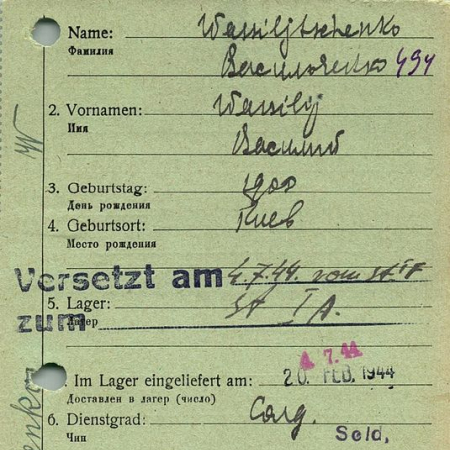 Name: Wassiljtschenko
Фамилия
Васильченко 494
2. Vornamen: Wassilij
Имя
Василий
3. Geburtstag: 1900
День рождения
4. Geburtsort: Киев
Место рождения
Versetzt am 4.7.44. vom St
5. Lager: St I A.
Лагер
zum
. Im Lager eingeliefert am: 20. FEB. 1944
4. 7. 44
Доставлен в лагер (число)
6. Dienstgrad:
Чин
Sold.